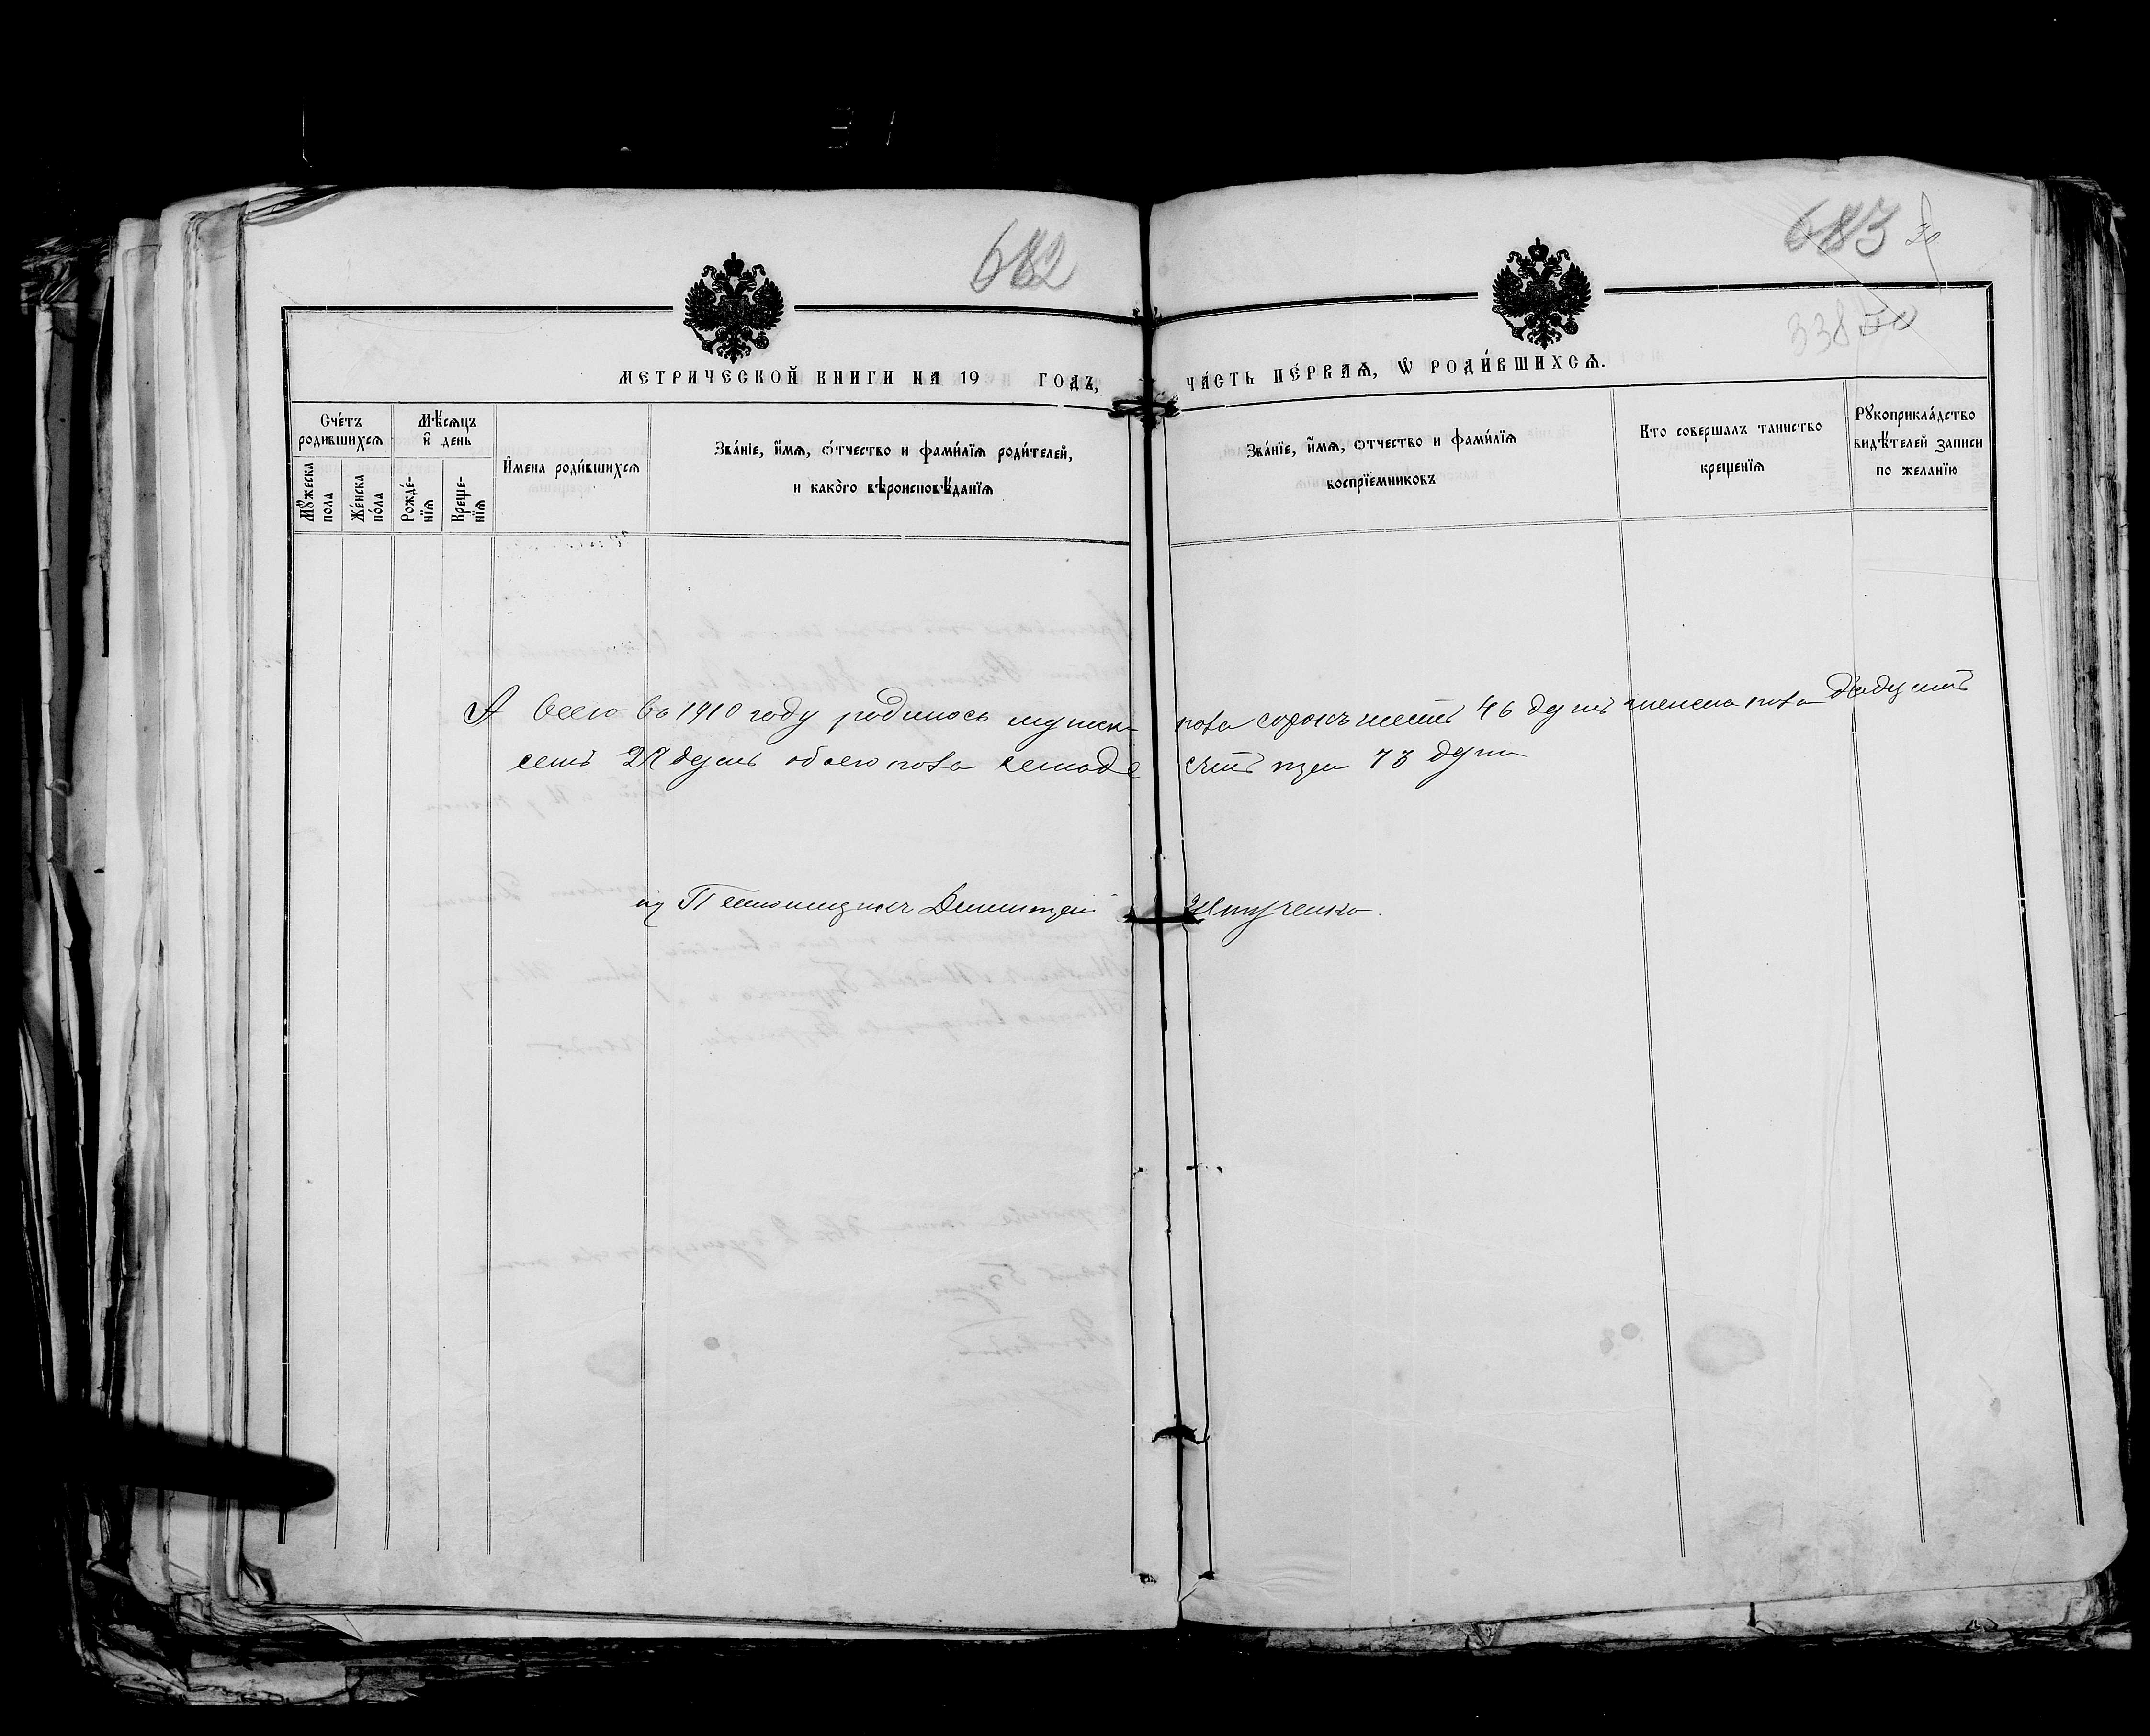 682
683
338
МЕТРИЧЕСКОЙ КНИГИ НА 19 ГОДЪ, ЧА́СТЬ ПЕ́РВАЯ, Ѡ РОДИ́ВШИХСЯ.
Сче́тъ родившихся
Мꙋ́жеска пола
Же́нска по́ла
Мѣ́сяцъ и҆ день
Рожде́нїя
Креще́нїя
И҆мена роди́вшихся
Зва́нїе, и҆́мя, о҆́тчество и фами́лїя роди́телей,
и како́го вѣроисповѣ́данїя
Зва́нїе, и҆́мя, о҆тчество и фами́лїя
воспрїемниковъ
Кто совершалъ таинство
крещенїя
Рꙋкоприкла́дство
видѣ́телей записи
по желанїю
А всего въ 1910 году родилось мужска пола сорокъ шесть 46 душъ женска пола двадцать
семь 27 душъ обоего пола семьдесятъ три 73 души
Псаломщикъ Димитрій